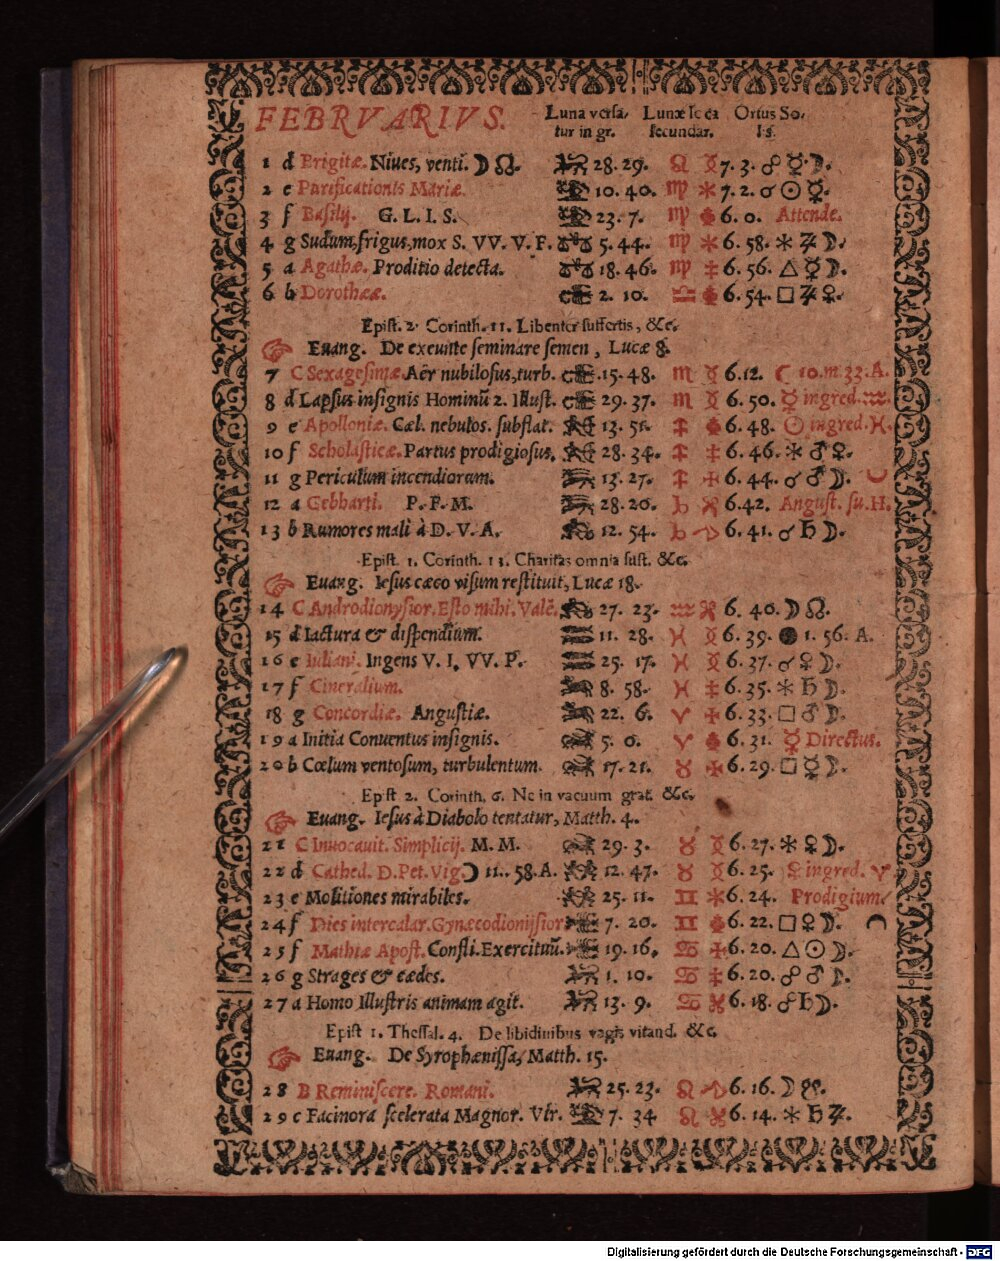 FEBRVARIVS. Luna versa- Lunæ Ortus So-
tur in gr. secundar. lis.
1 d Brigitæ. Niues, venti. ☽ ☊. 28. 29. ♌ 7. 3. ☍ ☿ ☽.
2 e Purificationis Mariæ. 10. 40. ♍ 7. 2. ☌ ☉ ☿.
3 f Basilij. G. L. I. S. 23. 7. ♍ 6. 0. Attende.
4 g Sudum, frigus, mox S. VV. V. F. 5. 44. ♍ 6. 58. ⚹ ♃ ☽.
5 a Agathæ. Proditio detecta. 18. 46. ♍ 6. 56. △ ☿ ☽.
6 b Dorotheæ. 2. 10. ♎ 6. 54. □ ♃ ♀.
Epist. 2. Corinth. 11. Libenter suffertis, &c.
Euang. De exeunte seminare semen, Lucæ 8.
7 C Sexagesimæ. Aër nubilosus, turb. 15. 48. ♏ 6.12. ☾ 10. m 33. A.
8 d Lapsus insignis Hominũ 2. Illust. 29. 37. ♏ 6. 50. ☿ ingred. ♒.
9 e Apolloniæ. Cæl. nebulos. subflat. 13. 51. ♐ 6. 48. ☉ ingred. ♓.
10 f Scholasticæ. Partus prodigiosus. 28. 34. ♐ 6. 46. ⚹ ♂ ♀.
11 g Periculum incendiorum. 13. 27. ♐ 6. 44. ☌ ♂ ☽.
12 a Gebharti. P. F. M. 28. 20. ♑ 6.42. August. su. H.
13 b Rumores mali à D. V. A. 12. 54. ♑ 6. 41. ☌ ♄ ☽.
Epist. 1. Corinth. 13. Charitas omnia sust. &c.
Euang. Iesus cæco visum restituit, Lucæ 18.
14 C Androdionysior. Esto mihi. Valẽ. 27. 23. ♒ 6. 40. ☽ ☊.
15 d Iactura & dispendium. 11. 28. ♓ 6. 39. ● 1. 56. A.
16 e Iuliani. Ingens V. I. VV. P. 25. 17. ♓ 6. 37. ☌ ♀ ☽.
17 f Cineralium. 8. 58. ♓ 6. 35. ⚹ ♄ ☽.
18 g Concordiæ. Angustiæ. 22. 6. ♈ 6. 33. □ ♂ ☽.
19 a Initia Conuentus insignis. 5. 0. ♈ 6. 31. ☿ Directus.
20 b Cœlum ventosum, turbulentum. 17. 21. ♉ 6. 29. □ ☿ ☽.
Epist 2. Corinth. 6. Ne in vacuum grat. &c.
Euang. Iesus à Diabolo tentatur, Matth. 4.
21 C Inuocauit. Simplicij. M. M. 29. 3. ♉ 6. 27. ⚹ ♀ ☽.
22 d Cathed. D. Pet. Vig. ☽ 11. 58. A. 12. 47. ♉ 6. 25. ♀ ingred. ♈.
23 e Molitiones mirabiles. 25. 11. ♊ 6. 24. Prodigium.
24 f Dies intercalar. Gynæcodionijsior. 7. 20. ♊ 6. 22. □ ♀ ☽.
25 f Mathiæ Apost. Confli. Exercituũ. 19. 16. ♋ 6. 20. △ ☉ ☽.
26 g Strages & cædes. 1. 10. ♋ 6. 20. ☍ ♂ ☽.
27 a Homo Illustris animam agit. 13. 9. ♋ 6. 18. ☍ ♄ ☽.
Epist 1. Thessal. 4. De libidinibus vagis vitand. &c.
Euang. De Syrophænissa, Matth. 15.
28 B Reminiscere. Romani. 25. 23. ♌ 6. 16. ☽ ☋.
29 c Facinora scelerata Magnor. Vir. 7. 34 ♌ 6. 14. ⚹ ♄ ♃.
Digitalisierung gefördert durch die Deutsche Forschungsgemeinschaft - DFG